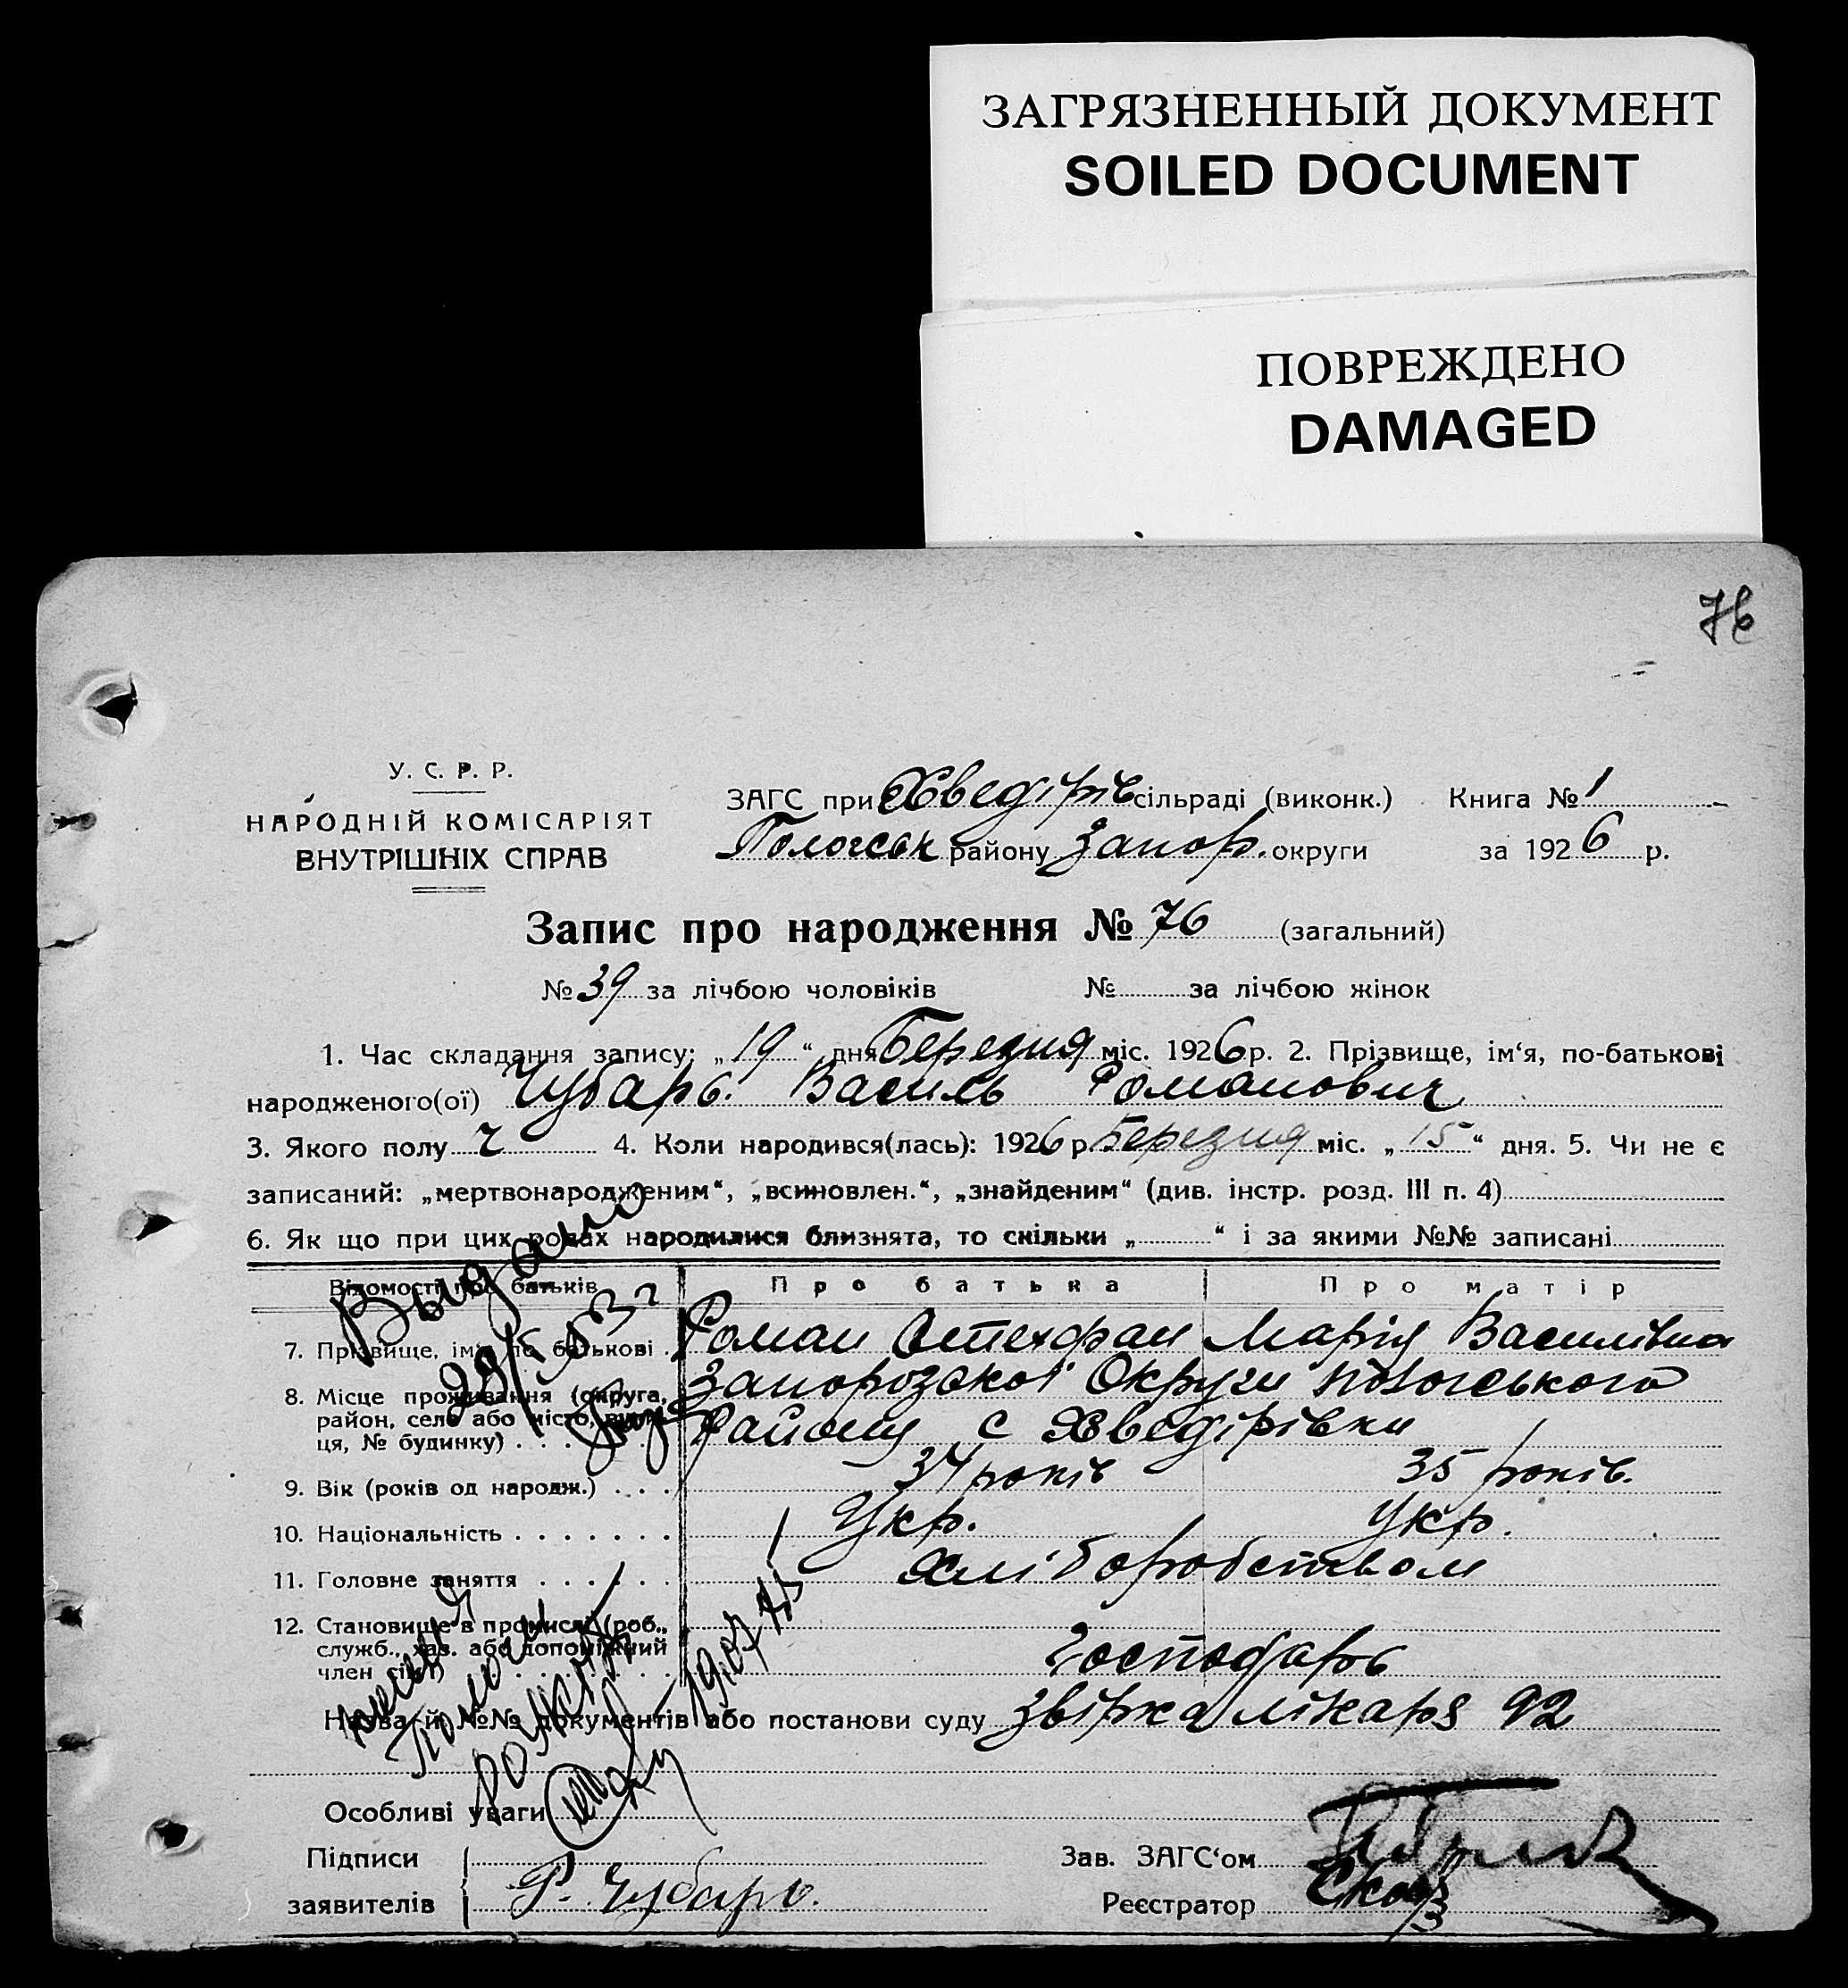 ЗАГРЯЗНЕННЫЙ ДОКУМЕНТ
SOILED DOCUMENT
ПОВРЕЖДЕНО
DAMAGED
76
У. С. Р. Р.
НАРОДНІЙ КОМІСАРІЯТ
ВНУТРІШНІХ СПРАВ
ЗАГС при Хведірів сільраді (виконк.) Книга № 1
Пологськ району Запор. округи за 1926 р.
Запис про народження № 76 (загальний)
№ 39 за лічбою чоловіків № за лічбою жінок
1. Час складання запису: „19“ дня Березня міс. 1926 р. 2. Прізвище, ім‘я, по-батькові
народженого(ої) Чубарь. Василь Романович
3. Якого полу ч 4. Коли народився(лась): 1926 р. Березня міс. „15“ дня. 5. Чи не є
записаний: „мертвонародженим“, „всиновлен.“, „знайденим“ (див. інстр. розд. III п. 4)
6. Як що при цих родах народилися близнята, то скільки „ “ і за якими №№ записані
Відомості про батьків Про батька Про матір
7. Прізвище, ім‘я по батькові . Роман Марія Василівна
8. Місце проживання (округа, Запорозької Округи Пологського
район, село або місто, вули- Району с Хведірівки
ця, № будинку) . . .
9. Вік (років од народж.) . . . 34 років 35 років.
10. Національність . . . . . . . Укр. Укр.
11. Головне заняття . . . . . . Хліборобством
12. Становище в промислі (роб.,
служб., хаз. або допоміжний Господарь
член сім‘ї)
Назва й №№ документів або постанови суду звірка лікаря 92
Особливі уваги
Підписи Зав. ЗАГС‘ом
заявителів Р. Чубарь. Реєстратор
Выдано